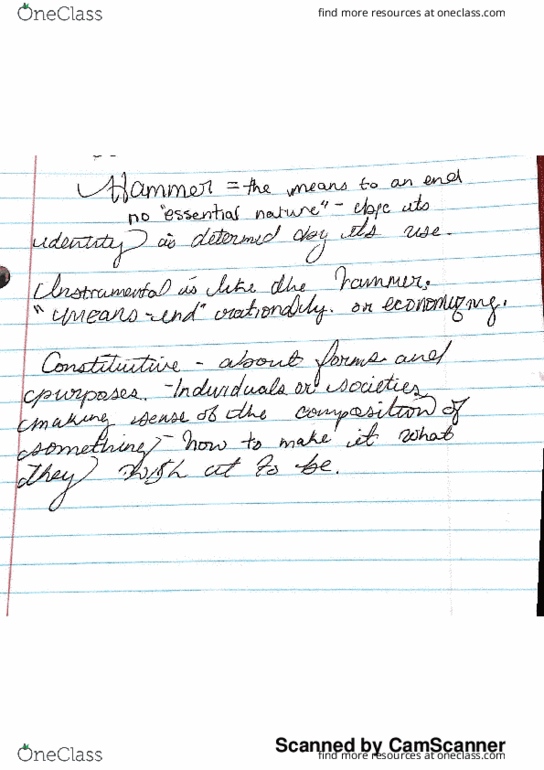 OneClass
find more resources at oneclass.com
Hammer = the means to an end
no "essential nature" - its
identity is determind by its use.
Instrumental is like the hammer.
"means-end" rationality. on economizing.
Constituitive - about forms and
purposes. - Individuals or societies
making sense of the composition of
something - how to make it what
they wish it to be.
Scanned by CamScanner
OneClass
find more resources at oneclass.com